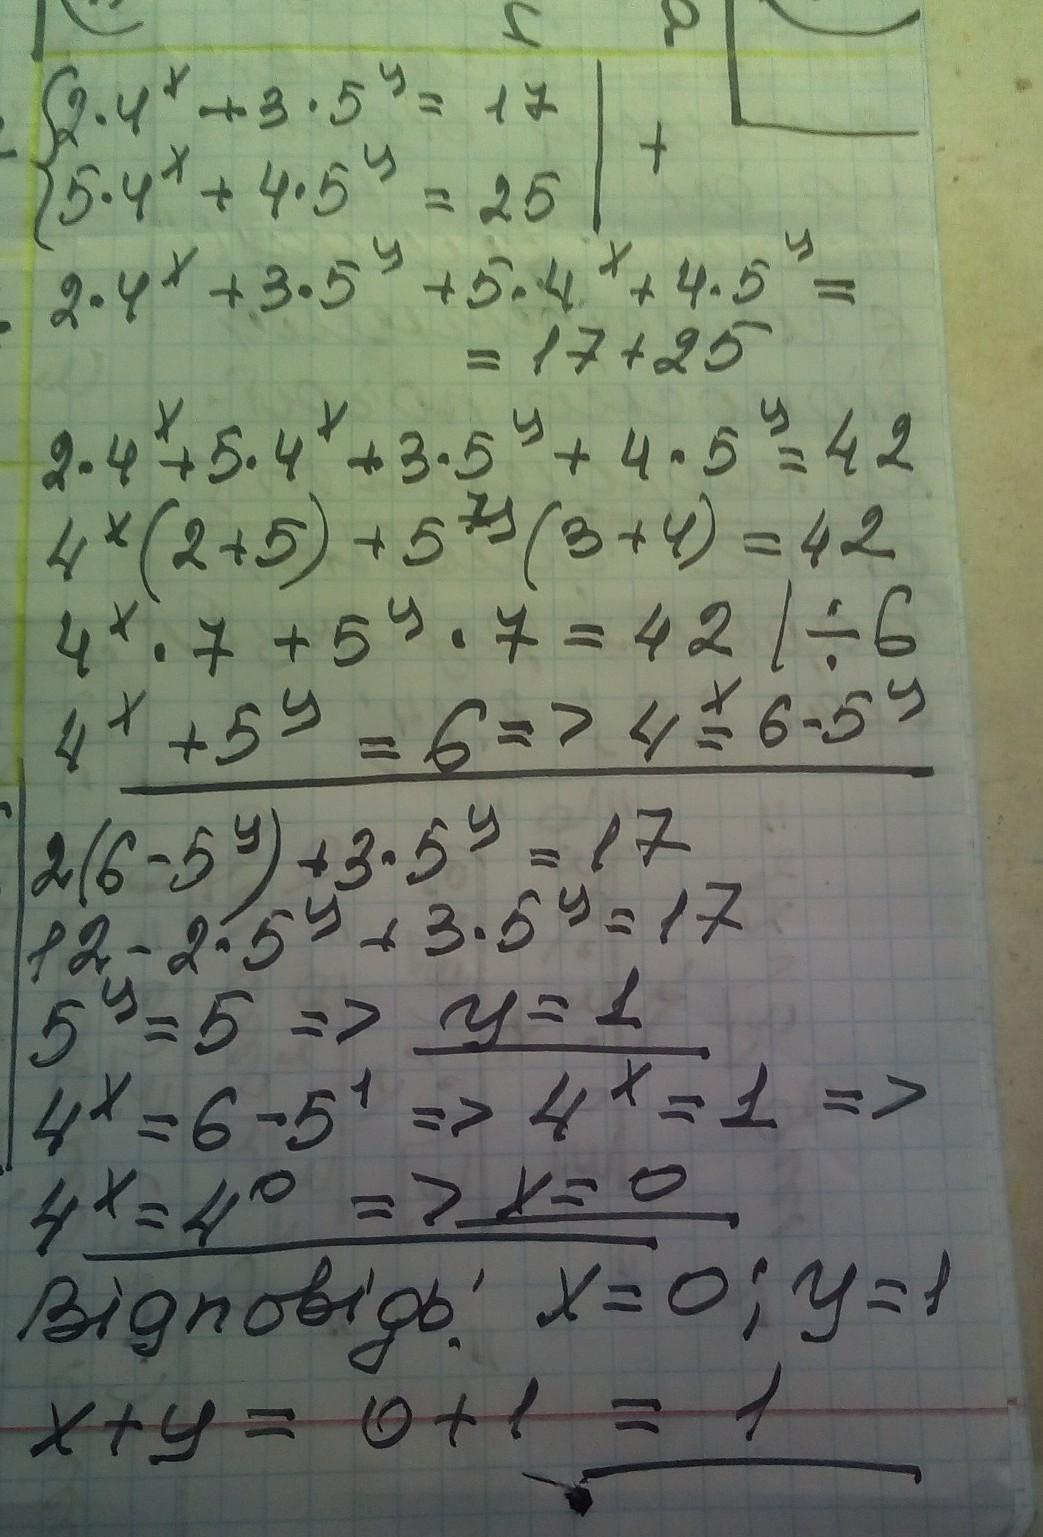 {2·4ˣ + 3·5ʸ = 17 | +
{5·4ˣ + 4·5ʸ = 25
2·4ˣ + 3·5ʸ + 5·4ˣ + 4·5ʸ =
= 17 + 25
2·4ˣ + 5·4ˣ + 3·5ʸ + 4·5ʸ = 42
4ˣ(2+5) + 5ʸ(3+4) = 42
4ˣ·7 + 5ʸ·7 = 42 | ÷6
4ˣ + 5ʸ = 6 => 4ˣ = 6-5ʸ
2(6-5ʸ) + 3·5ʸ = 17
12 - 2·5ʸ + 3·5ʸ = 17
5ʸ = 5 => y = 1
4ˣ = 6 - 5¹ => 4ˣ = 1 =>
4ˣ = 4⁰ => x = 0
Відповідь: x = 0; y = 1
x + y = 0 + 1 = 1